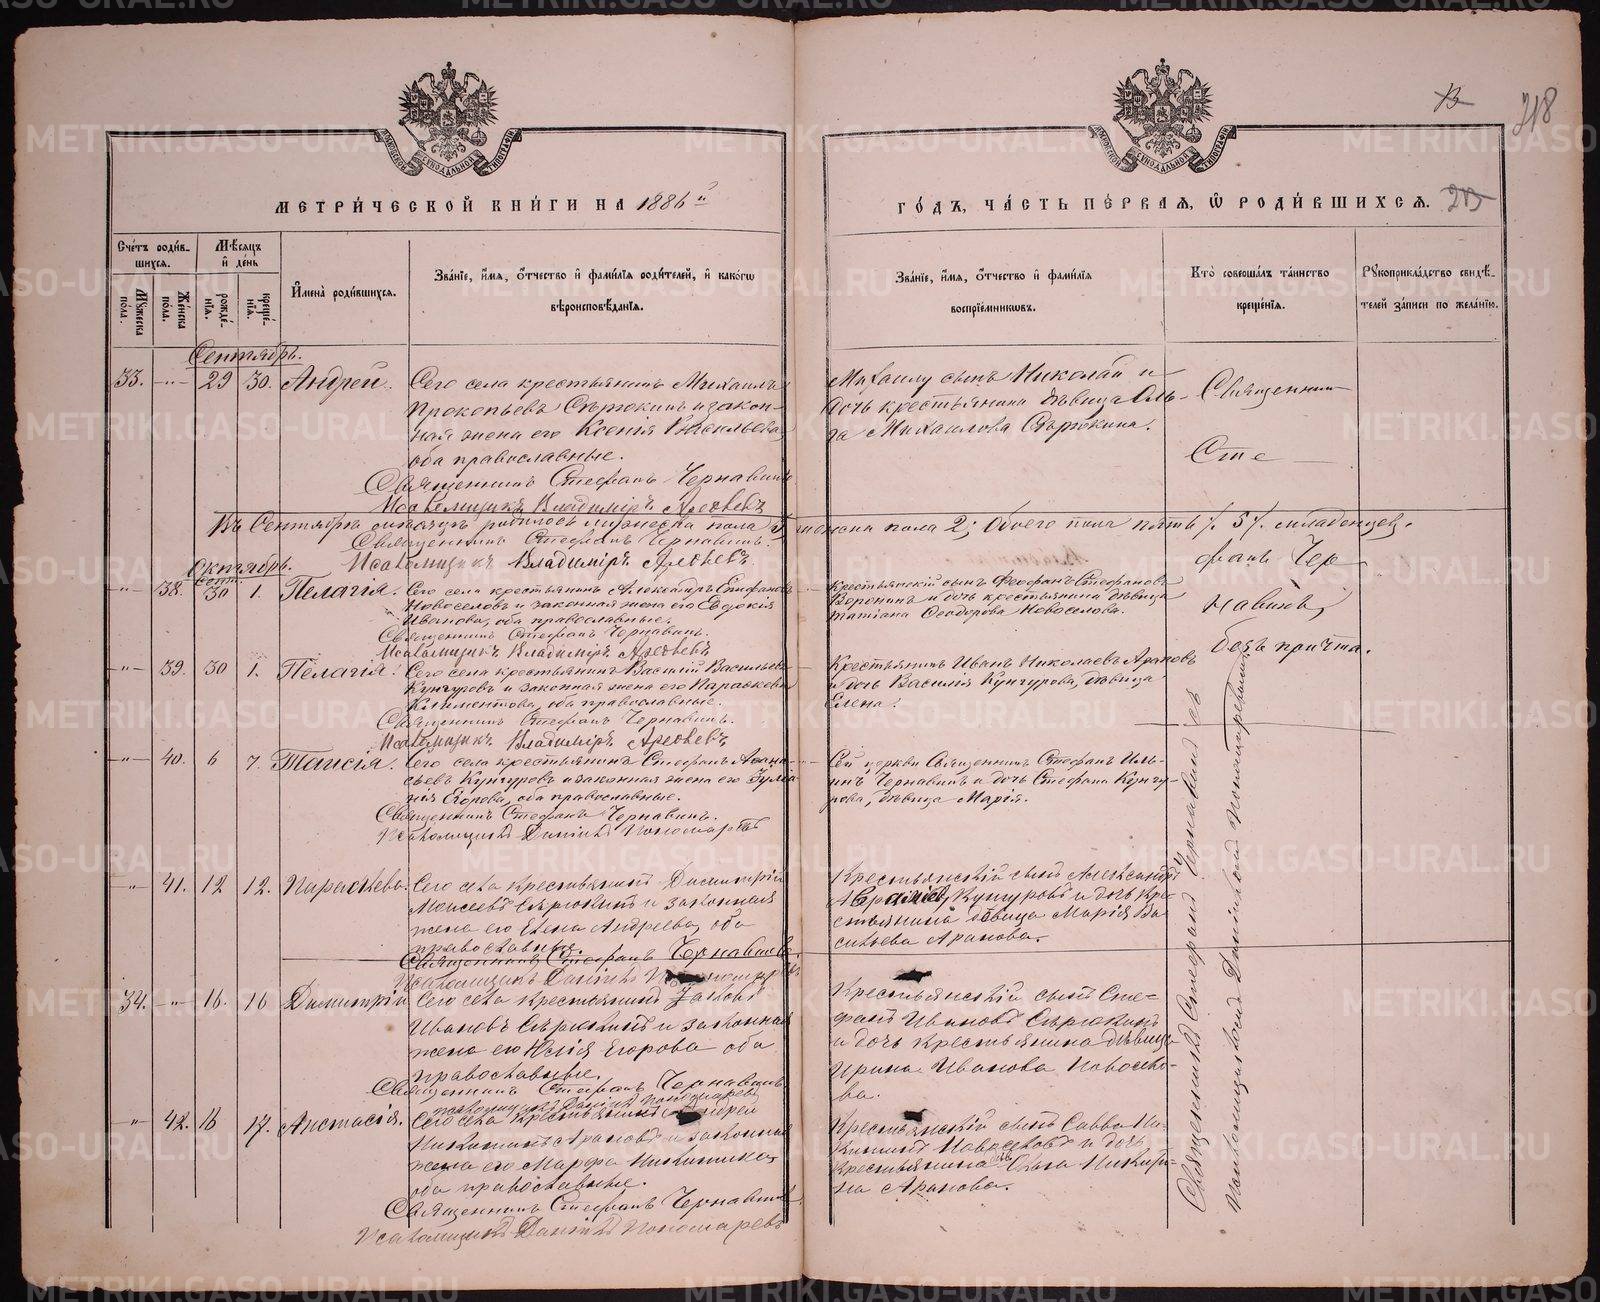 МЕТРИ́ЧЕСКОЙ КНИ́ГИ НА 1886 й
ГО́ДЪ, ЧА́СТЬ ПЕ́РВАЯ, Ѡ РОДИ́ВШИХСЯ.
13
218
213
Сче́тъ роди́в-
шихся.
Му́жеска по́ла.
Же́нска по́ла.
Мѣ́сяцъ и де́нь
рожде́нія.
креще́нія.
Имена̀ роди́вшихся.
Зва́ніе, и́мя, о́тчество и фами́лія роди́телей, и како́гѡ
вѣроисповѣ́данія.
Зва́ніе, и́мя, о́тчество и фами́лія
воспріе́мниковъ.
Кто̀ соверша́лъ та́инство
креще́нія.
Рукоприкла́дство свидѣ́-
телей за́писи по жела́нію.
Сентябрь.
33. -"- 29 30. Андрей.
Сего села крестьянинъ Михаилъ
Прокопьевъ Сѣрюкинъ и закон-
ная жена его Ксенія Васильева,
оба православные.
Священникъ Стефанъ Чернавинъ
Псаломщикъ Владимiръ Арефьевъ
Михаилу сынъ Николай и
дочь крестьянина дѣвица Оль-
га Михаилова Сѣрюкина.
Священникъ
Сте
Въ Сентябрѣ родилось мужеска пола женска пола 2; обоего пола пять /. 5/. младенцев.
Священникъ Стефанъ Чернавинъ.
Псаломщикъ Владимiръ Арефьевъ.
фанъ Чер
навинъ,
безъ причта.
Октябрь.
Сент.
-"- 38. 30 1. Пелагія.
Сего села крестьянинъ Александръ Епифановъ
Новоселовъ и законная жена его Евдокія
Иванова, оба православные.
Священникъ Стефанъ Чернавинъ.
Псаломщикъ Владимiръ Арефьевъ
Крестьянскій сынъ Феофанъ Стефановъ
Воронинъ и дочь крестьянина дѣвица
Татіана Ѳеодорова Новоселова.
-"- 39. 30 1. Пелагія.
Сего села крестьянинъ Василій Васильевъ
Кунгуровъ и законная жена его Параскева
Климентова, оба православные.
Священникъ Стефанъ Чернавинъ.
Псаломщикъ Владимiръ Арефьевъ
Крестьянинъ Иванъ Николаевъ Араповъ
и дочь Василія Кунгурова, дѣвица
Елена.
-"- 40. 6 7. Таисія.
Сего села крестьянинъ Стефанъ Афана-
сьевъ Кунгуровъ и законная жена его
Егорова, оба православные.
Священникъ Стефанъ Чернавинъ.
Псаломщикъ Даніилъ Пономаревъ
Сей церкви Священникъ Стефанъ Иль-
инъ Чернавинъ и дочь Стефана Кунгу-
рова, дѣвица Марія.
-"- 41. 12 12. Параскева.
Сего села крестьянинъ Димитрій
Моисеевъ Сѣрюкинъ и законная
жена его Елена Андреева, оба
православные.
Священникъ Стефанъ Чернавинъ
Псаломщикъ Даніилъ
Крестьянскій сынъ Александръ
Кунгуровъ и дочь кре-
стьянина дѣвица Марія Ва-
сильева Арапова.
34. -"- 16. 16 Димитрій
Сего села крестьянинъ
Ивановъ Сѣрюкинъ и законная
жена его Юлія Егорова оба
православные.
Священникъ Стефанъ Чернавинъ
Псаломщикъ Даніилъ Пономаревъ
Крестьянскій сынъ Сте-
фанъ Ивановъ Сѣрюкинъ
и дочь крестьянина дѣвица
Ирина Иванова Новосело-
ва.
-"- 42. 16 17. Анастасія.
Сего села крестьянинъ Андрей
Никитинъ Араповъ и законная
жена его Марфа Никитина,
оба православные.
Священникъ Стефанъ Чернавинъ
Псаломщикъ Даніилъ Пономаревъ
Крестьянскій сынъ Савва Ни-
китинъ Новоселовъ и дочь
крестьянина дѣв. Ольга Никити-
на Арапова.
Священникъ Стефанъ Чернавинъ съ
Псаломщикомъ Даніиломъ Пономаревымъ
METRIKI.GASO-URAL.RU